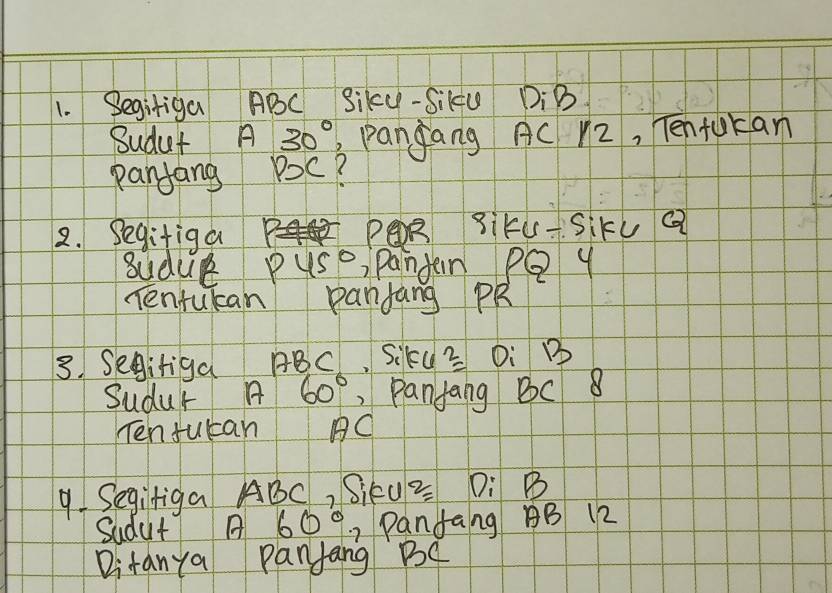 1. Segitiga ABC Siku-Siku Di B
Sudut A 30°, Panjang AC 12, Tentukan
panjang BC?
2. Segitiga PQR Siku-Siku Q
Sudut P 45°, Panjan PQ 4
Tentukan panjang PR
3. Segitiga ABC, Siku2 Di B
Sudut A 60°, Panjang BC 8
Tentukan AC
4. Segitiga ABC, Siku2 Di B
Sudut A 60°, Panjang AB 12
Ditanya Panjang BC